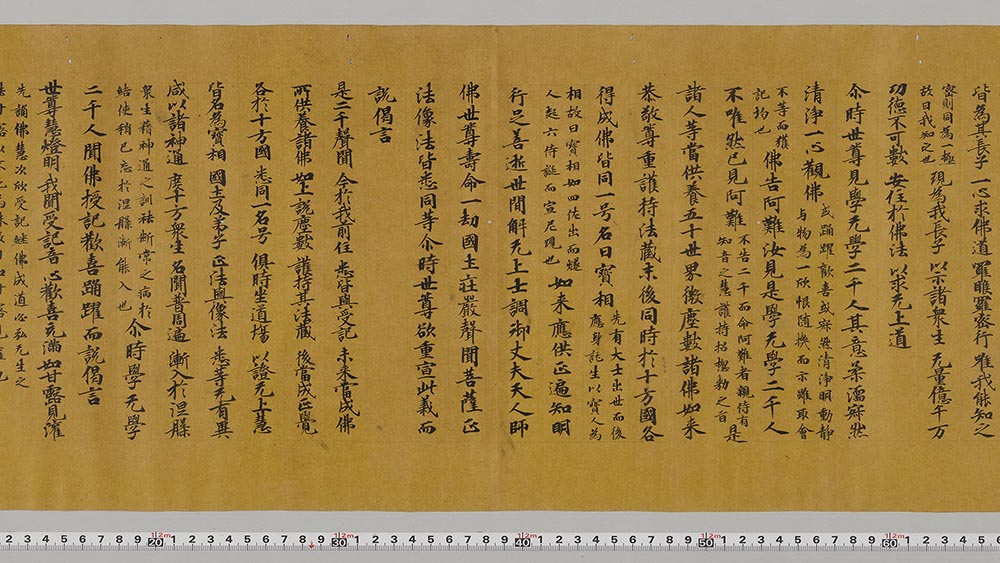 皆為其長子 一心求佛道 羅睺羅密行 唯我能知之
密則同為一極
故曰我知之也
現為我長子 以示諸衆生 无量億千万
功德不可數 安住於佛法 以求无上道
尒時世尊見學无學二千人其意柔濡寂然
清淨一心觀佛
或踊躍歡喜或寂然清淨明動靜
与物為一欣恨随換而示雖取會
不等而獲
記均也
佛告阿難汝見是學无學二千人
不唯然已見阿難
不告二千而命阿難者親侍有
知音之慧護持招極勅之旨
是
諸人等當供養五十世界微塵數諸佛如来
恭敬尊重護持法藏末後同時於十方國各
得成佛皆同一号名曰寶相
先有大士出世而後
應身託生以寶人為
相故曰寶相如四佐出而燧
人起六侍誕而宣尼現也
如来應供正遍知明
行足善逝世間解无上士調御丈夫天人師
佛世尊壽命一劫國土莊嚴聲聞菩薩正
法像法皆悉同等尒時世尊欲重宣此義而
説偈言
是二千聲聞 今於我前住 悉皆與受記 未来當成佛
所供養諸佛 如上説塵數 護持其法藏 後當成正覺
各於十方國 悉同一名号 俱時坐道場 以證无上慧
皆名為寶相 國土及弟子 正法與像法 悉等无有異
咸以諸神通 度十方衆生 名聞普周遍 漸入於涅槃
衆生稍神通之訓祛斷常之病於
結使稍已忘於涅槃漸能入也
尒時學无學
二千人聞佛授記歡喜踊躍而説偈言
世尊慧燈明 我聞受記音 心歡喜充滿 如甘露見灌
先誦佛慧次欣受記継佛成道必利无生之